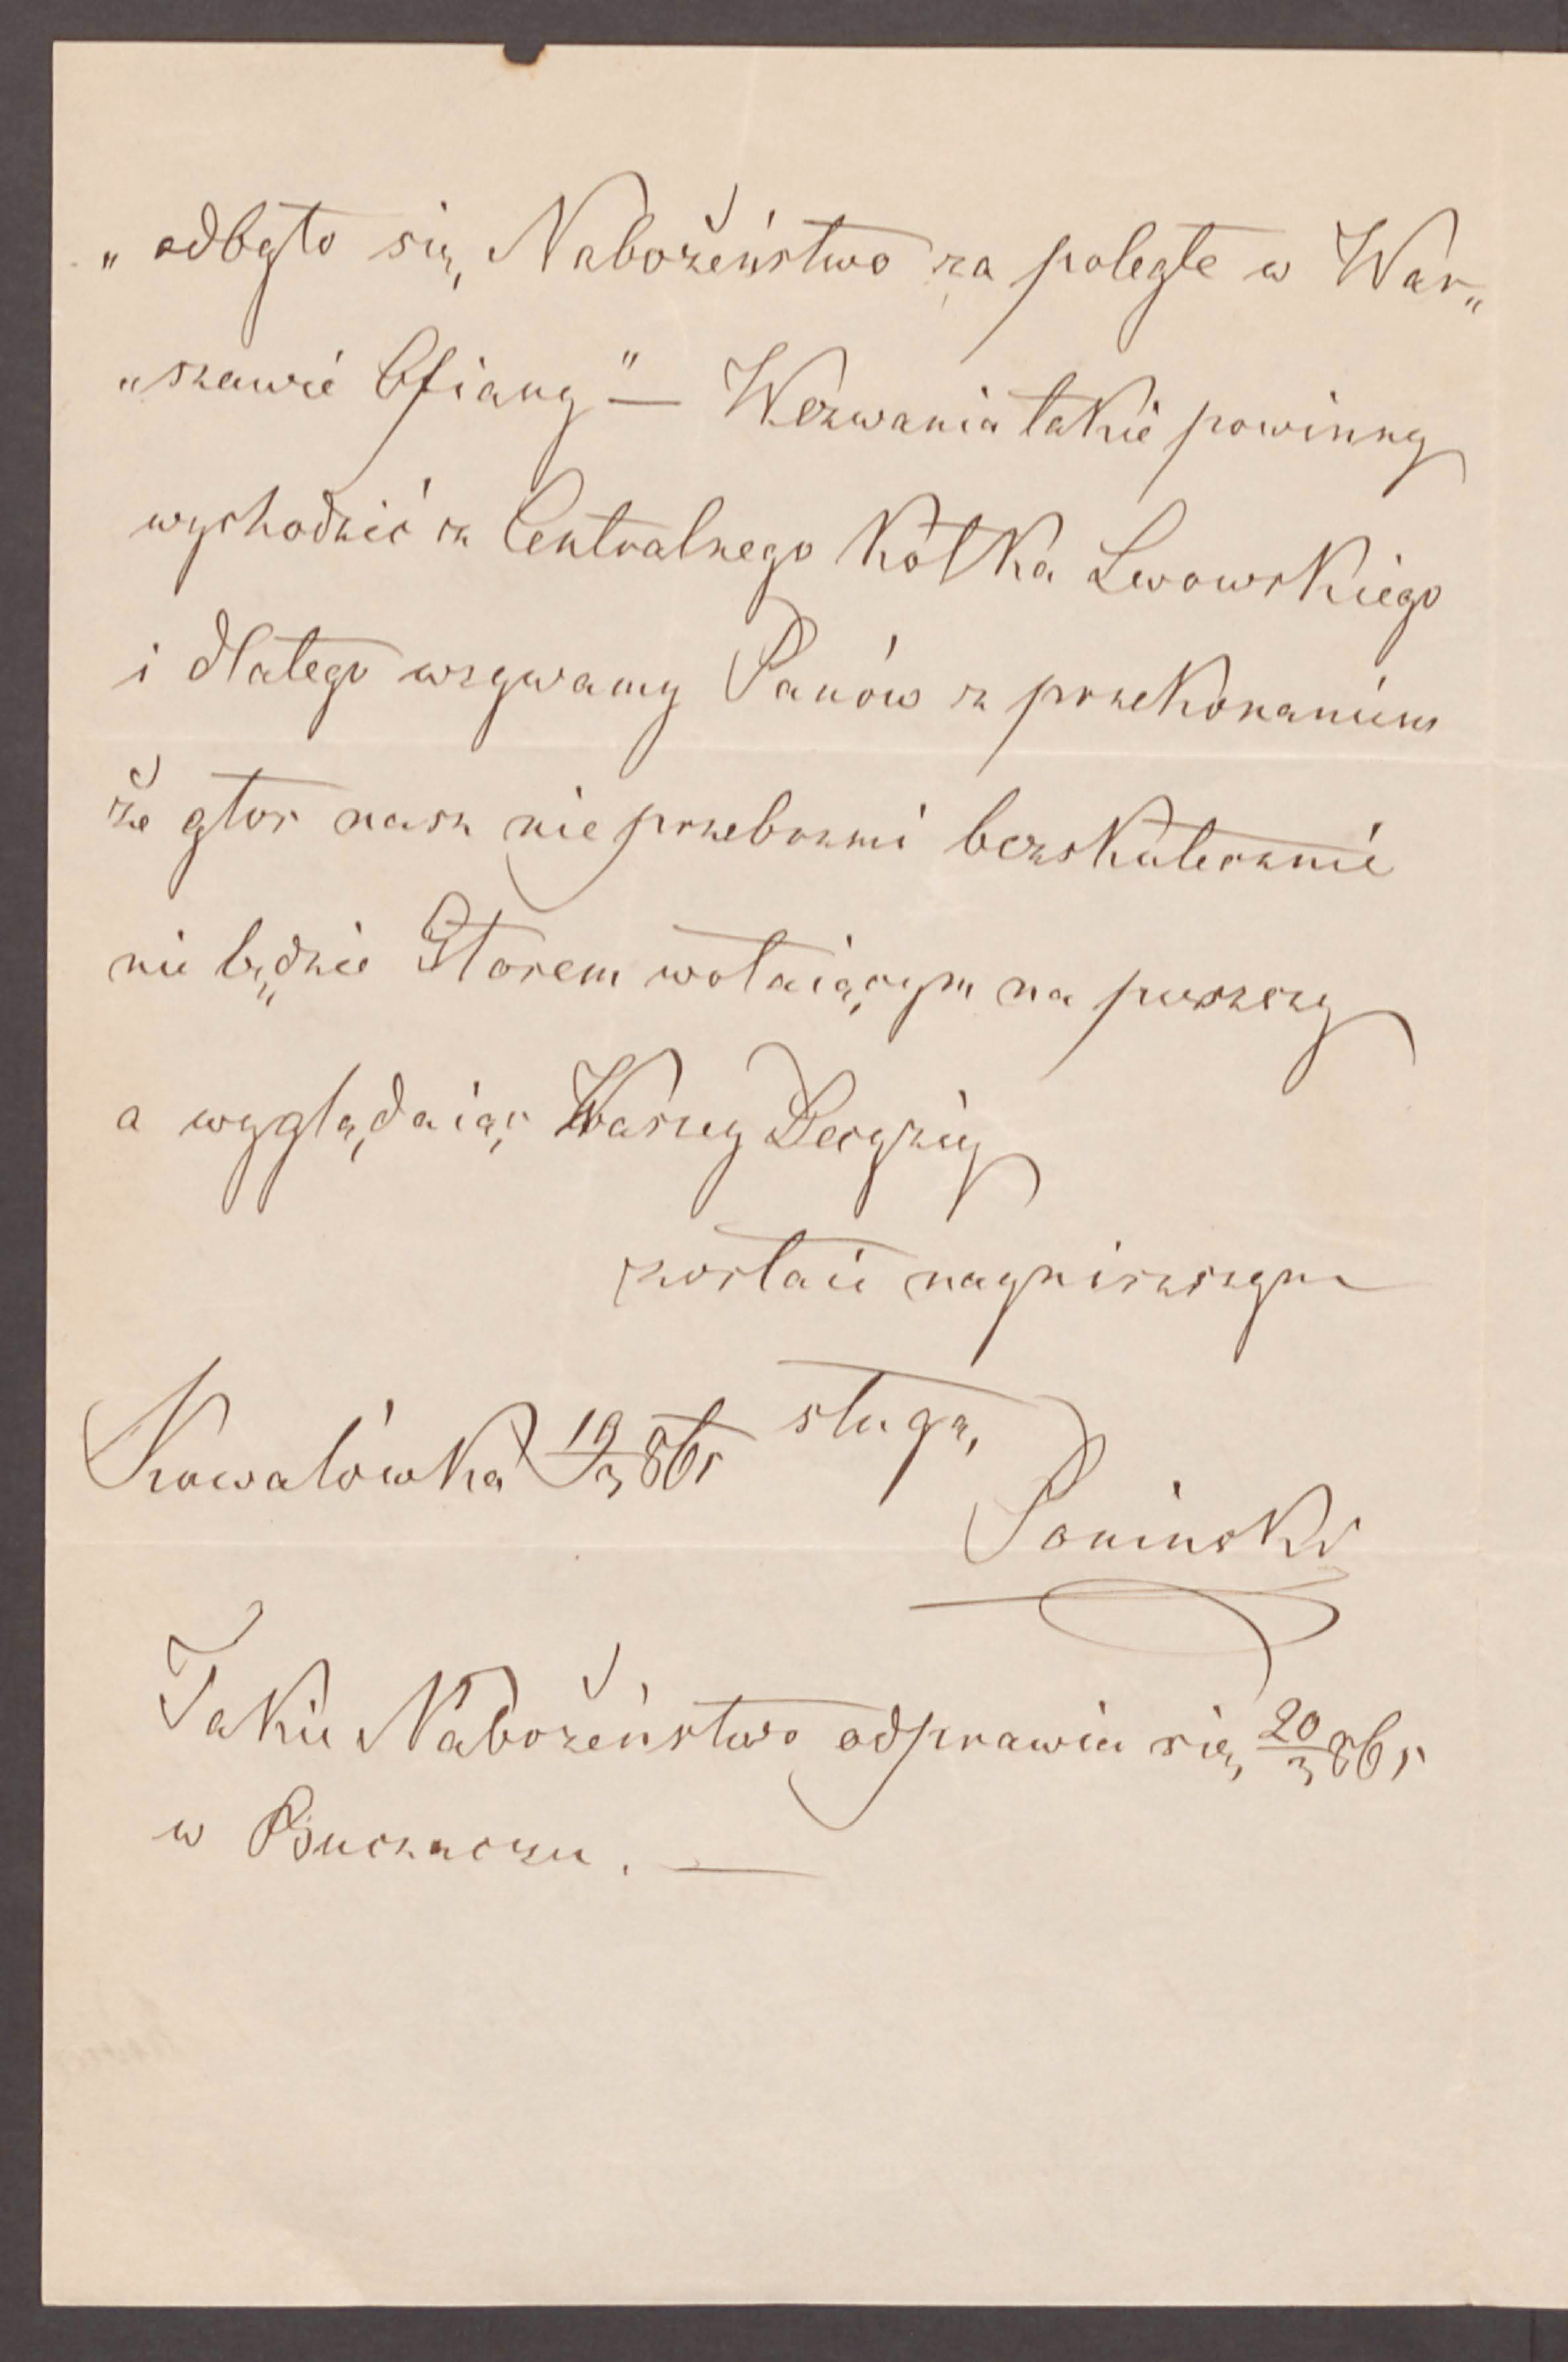 „odbyło się Nabożeństwo za poległe w War„
„szawie Ofiary" — Wezwania takie powinny
wychodzić z Centralnego Kółka Lwowskiego
i dlatego wzywamy Panów z przekonaniem
że głos nasz nie przebrzmi bezskutecznie
nie będzie Głosem wołaiącym na puszczy
a wyglądaiąc Waszey Decyziy
zostaie nayniższym
sługą
Kowalówka 19/3 861
Poninski
Takie Nabożeństwo odprawia się 20/3 861
w Buczaczu. —